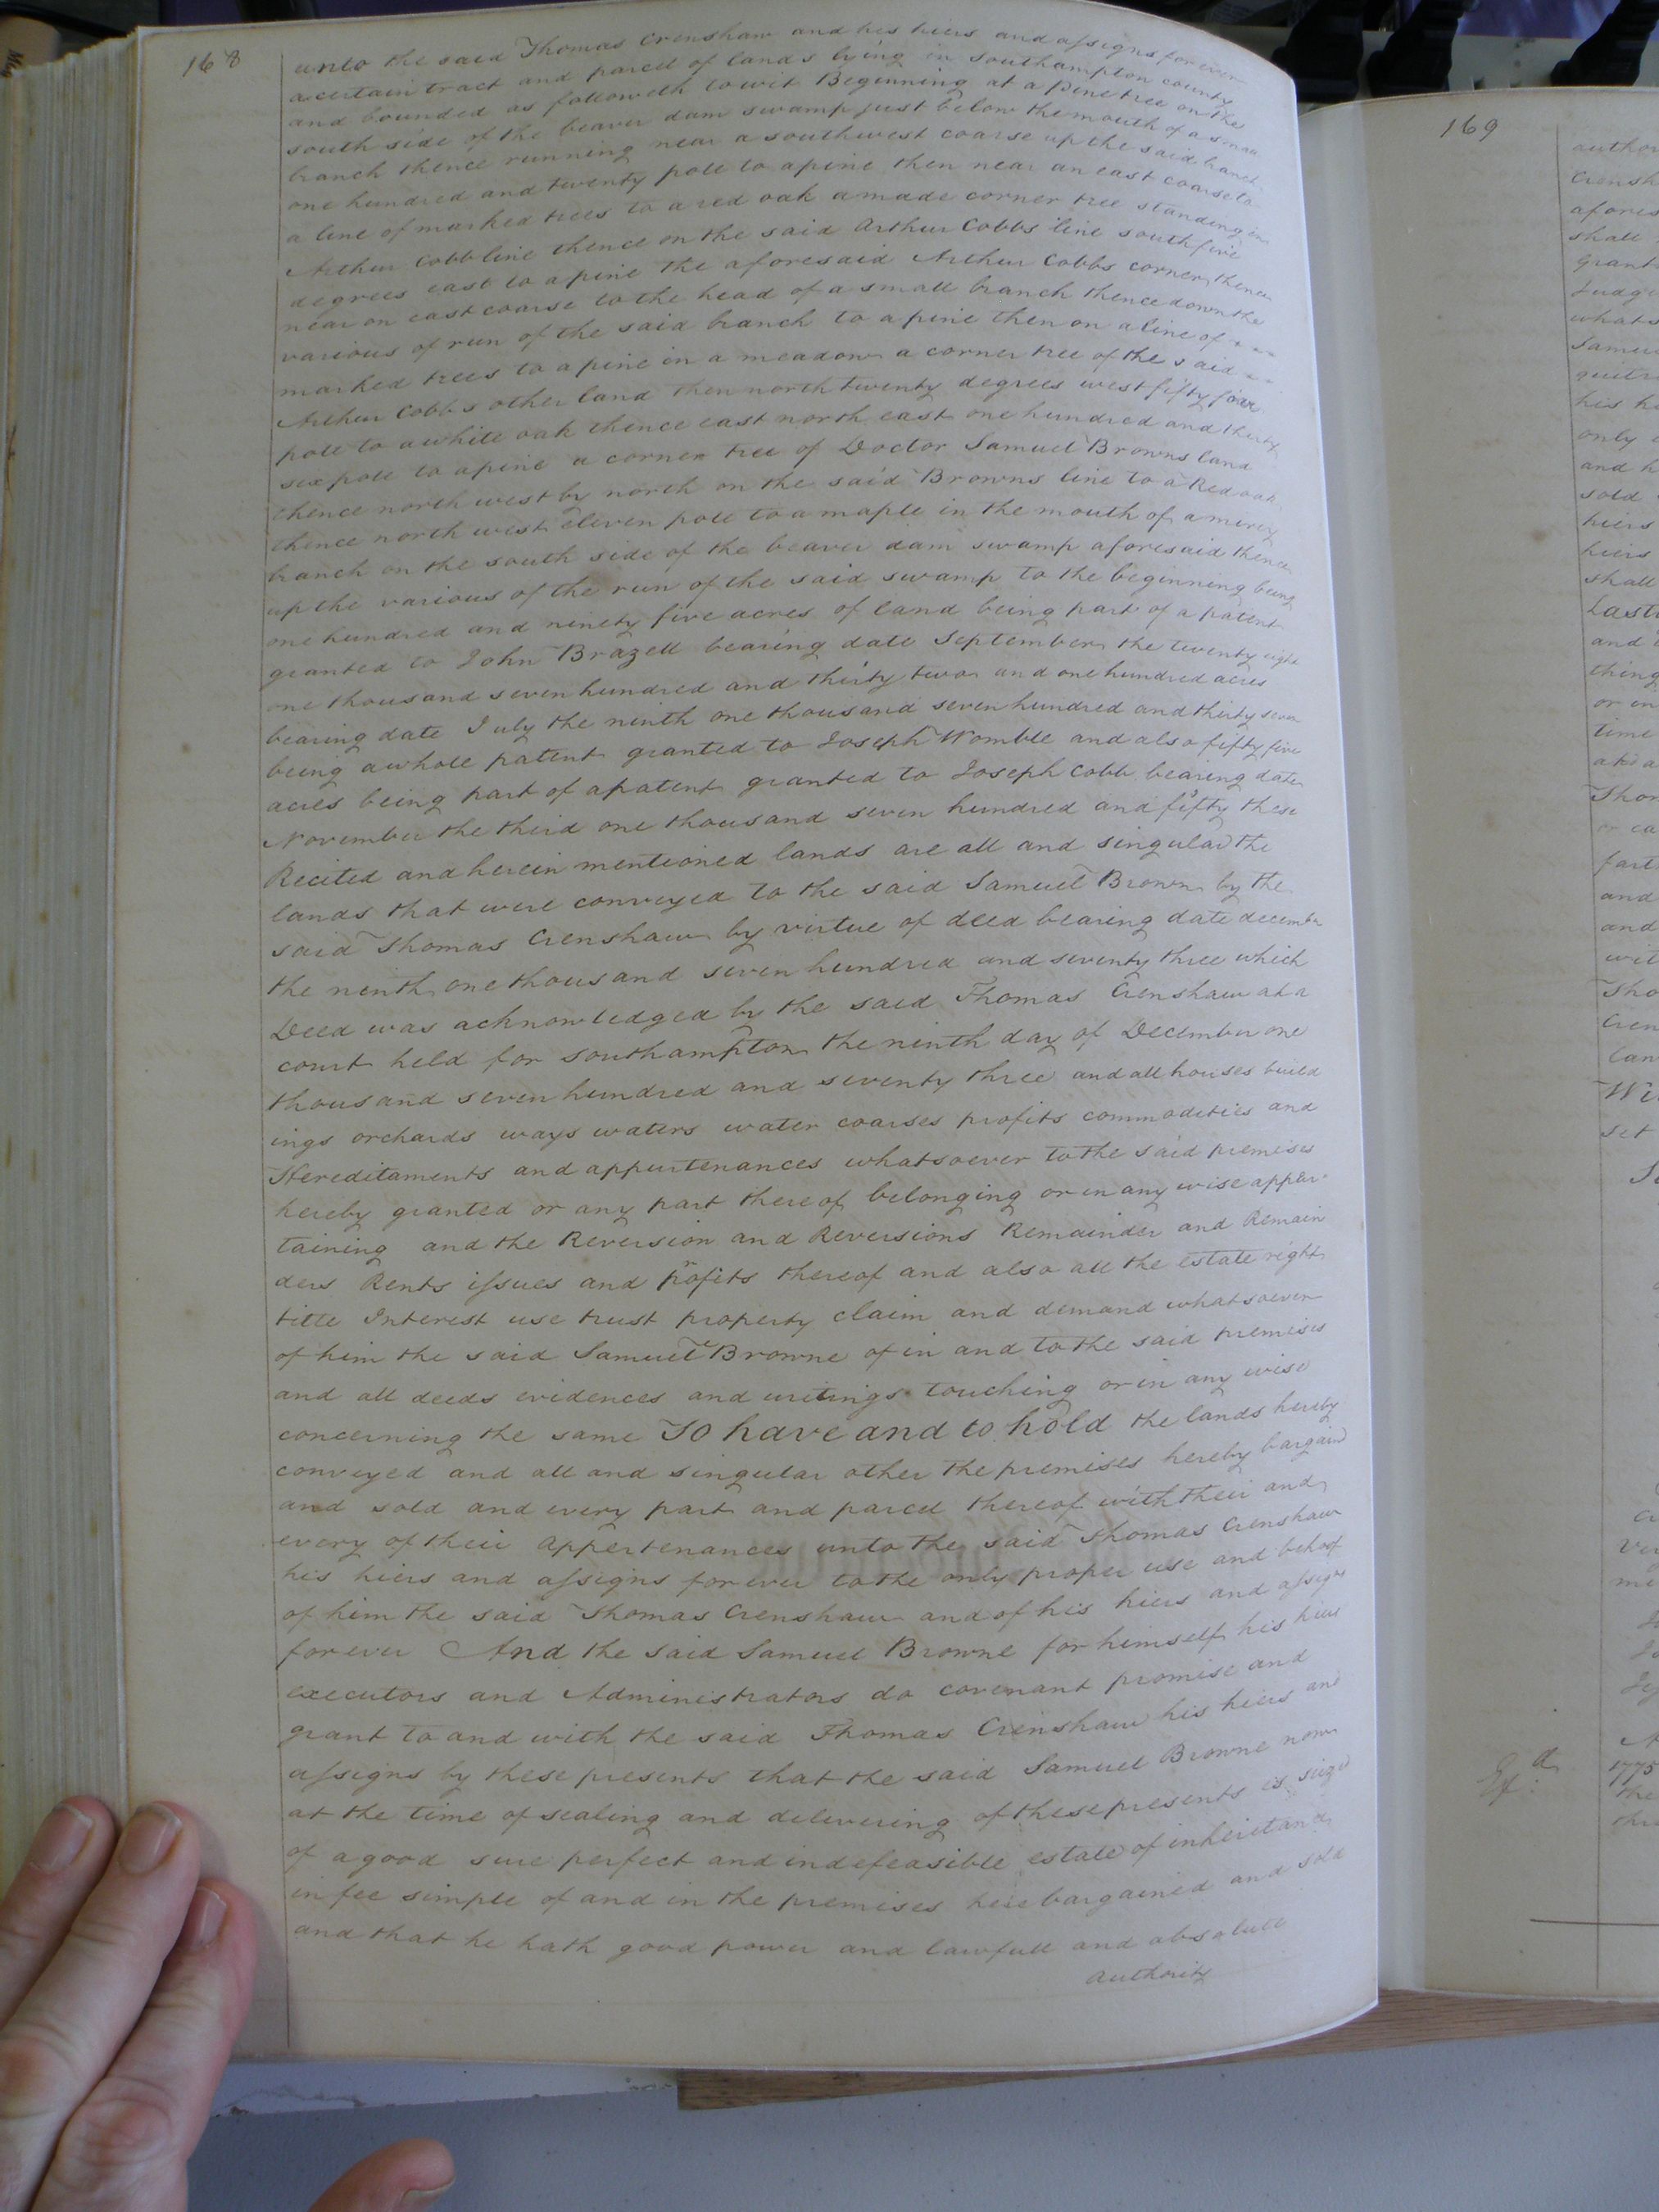 168
unto the said Thomas Crenshaw and his hiers and assigns forever
a certain tract and parcel of lands lying in Southampton county
and bounded as followeth to wit Beginning at a pine tree on the
south side of the beaver dam swamp just below the mouth of a small
branch thence running near a southwest coarse up the said branch
one hundred and twenty pole to a pine then near an east coarse to
a line of marked trees to a red oak a made corner tree standing in
Arthur Cobb line thence on the said Arthur Cobbs line south five
degrees east to a pine the aforesaid Arthur Cobbs corner, thence
near on east coarse to the head of a small branch thence down the
various of run of the said branch to a pine then on a line of
marked trees to a pine in a meadow a corner tree of the said
Arthur Cobbs other land then north twenty degrees west fifty four
pole to a white oak thence east north east one hundred and thirty
six pole to a pine a corner tree of Doctor Samuel Browns land
thence north west by north on the said Browns line to a Red oak
thence north west eleven pole to a maple in the mouth of a mirey
branch on the south side of the beaver dam swamp aforesaid thence
up the various of the run of the said swamp to the beginning being
one hundred and ninety five acres of land being part of a patent
granted to John Brazell bearing date September the twenty eight
one thousand seven hundred and thirty two and one hundred acres
bearing date July the ninth one thousand seven hundred and thirty seven
being a whole patent granted to Joseph Womble and also fifty five
acres being part of a patent granted to Joseph Cobb bearing date
November the third one thousand seven hundred and fifty these
Recited and herein mentioned lands are all and singular the
lands that were conveyed to the said Samuel Brown by the
said Thomas Crenshaw by virtue of deed bearing date decembr
the ninth one thousand seven hundred and seventy three which
Deed was acknowledged by the said Thomas Crenshaw at a
court held for Southampton the ninth day of December one
thousand seven hundred and seventy three and all houses build
ings orchards ways waters water coarses profits commodities and
Hereditaments and appurtenances whatsoever to the said premises
hereby granted or any part thereof belonging or in any wise apper
taining and the Reversion and Reversions Remainder and Remain
ders Rents issues and profits thereof and also all the estate right
title Interest use trust property claim and demand whatsoever
of him the said Samuel Browne of in and to the said premises
and all deeds evidences and writings touching or in any wise
concerning the same To have and to hold the lands hereby
conveyed and all and singular other the premises hereby bargaind
and sold and every part and parcel thereof with their and
every of their appertenances unto the said Thomas Crenshaw
his hiers and assigns forever to the only proper use and behoof
of him the said Thomas Crenshaw and of his hiers and assigns
forever And the said Samuel Browne for himself his hiers
executors and Administrators do covenant promise and
grant to and with the said Thomas Crenshaw his hiers and
assigns by these presents that the said Samuel Browne now
at the time of sealing and delivering of these presents is seized
of a good sure perfect and indefeasible estate of inheritance
in fee simple of and in the premises here bargained and sold
and that he hath good power and lawfull and absolute
authority
169
author
Crensh
afores
shall
grant
Judg
whats
Samu
quitr
his h
only
and h
sold
hiers
hiers
shall
Lastl
and
thing
or in
time
Thom
or ca
fart
and
and
wit
Tho
Cren
lan
Wi
set
Exd
1775
the